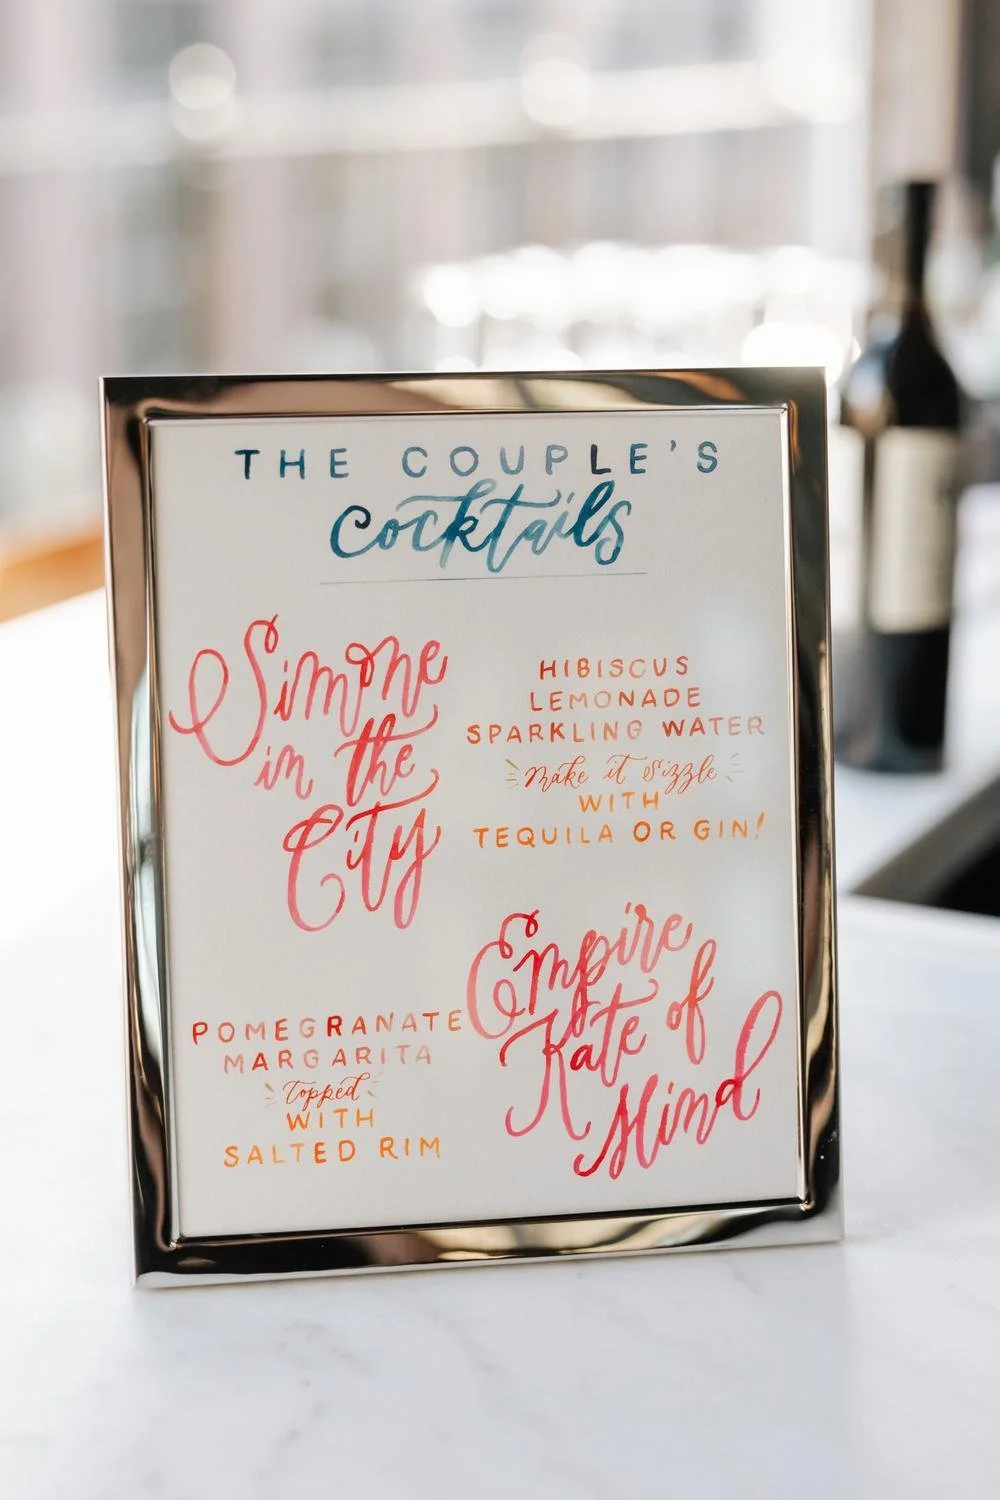 THE COUPLE'S
cocktails
Simone
in the
City
HIBISCUS
LEMONADE
SPARKLING WATER
make it sizzle
WITH
TEQUILA OR GIN!
POMEGRANATE
MARGARITA
topped
WITH
SALTED RIM
Empire
Kate of
Mind